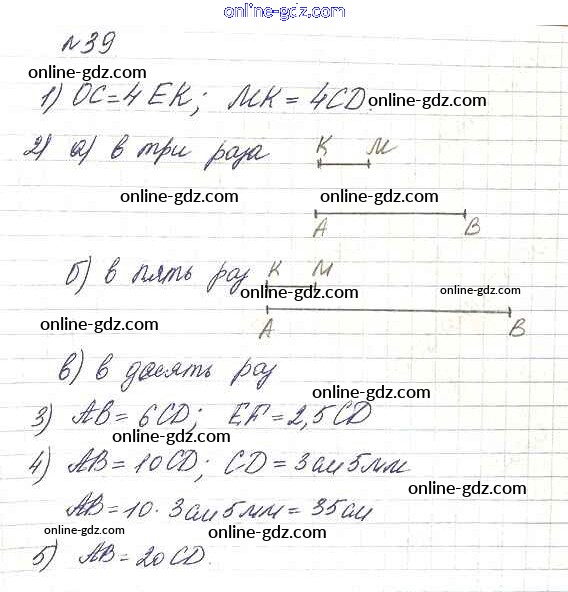 online-gdz.com
№39
online-gdz.com
1) OC=4EK; MK=4CD.
online-gdz.com
2) а) в три раза K M
online-gdz.com online-gdz.com
A B
б) в пять раз K M
online-gdz.com online-gdz.com
online-gdz.com
A B
в) в десять раз
online-gdz.com
3) AB=6CD; EF=2,5CD
online-gdz.com
4) AB=10CD; CD=3см5мм
online-gdz.com
AB=10·3см5мм=35см
online-gdz.com online-gdz.com
5) AB=20CD.